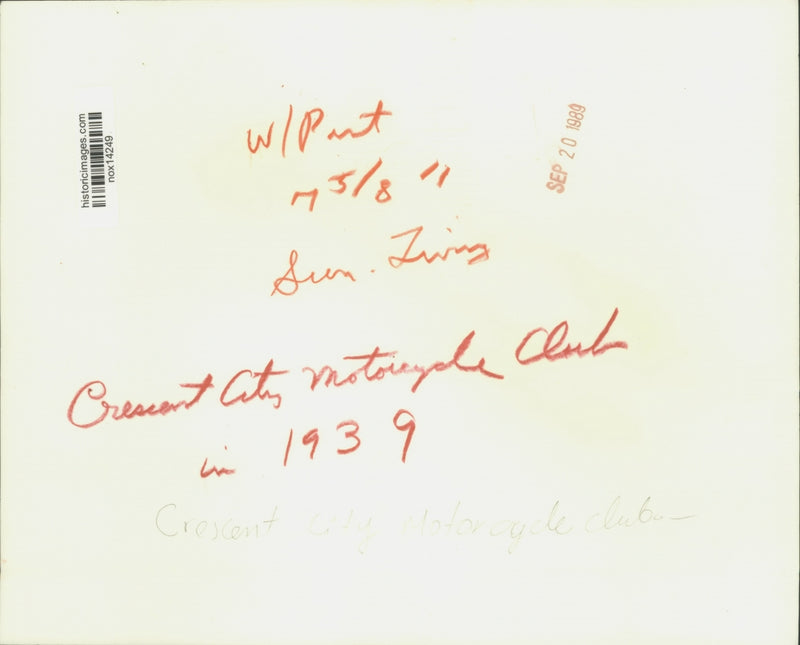 historicimages.com
nox14249
SEP 20 1989
W/Print
7 5/8 "
Sun. Living
Crescent City Motorcycle Club
in 1939
Crescent City Motorcycle club